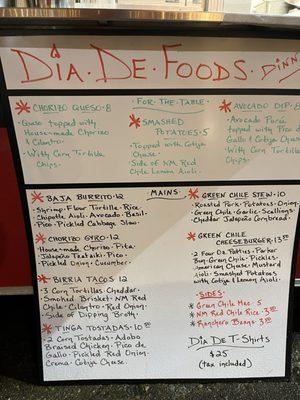 DIA · DE · FOODS · DINN
* CHORIZO QUESO · 8
Queso topped with
House-made Chorizo
& Cilantro.
· With Corn Tortilla
Chips
FOR · THE · TABLE
* SMASHED
POTATOES · 5
Topped with Cotija
Cheese
Side of NM Red
Chile Lemon Aioli
* AVOCADO DIP · 8
· Avocado Purée
topped with Pico de
Gallo & Cotija Cheese
· With Corn Tortilla
Chips.
MAINS
* BAJA BURRITO · 12
Shrimp · Flour Tortilla · Rice ·
Chipotle Aioli · Avocado · Basil ·
Pico · Pickled Cabbage Slaw.
* CHORIZO GYRO · 12
House-made Chorizo · Pita ·
Jalapeño Tzatziki · Pico ·
Pickled Onion · Cucumber
* BIRRIA TACOS 12
3 Corn Tortillas · Cheddar ·
Smoked Brisket · NM Red
Chile · Cilantro · Red Onion ·
Side of Dipping Broth
* TINGA TOSTADAS · 10
2 Corn Tostadas · Adobo
Braised Chicken · Pico de
Gallo · Pickled Red Onion ·
Crema · Cotija Cheese
* GREEN CHILE STEW · 10
Roasted Pork · Potatoes · Onion ·
Green Chile · Garlic · Scallions
Cheddar Jalapeño Cornbread ·
* GREEN CHILE
CHEESEBURGER · 13
2 Four Oz Patties · Parker
Bun · Green Chile · Pickles ·
American Cheese · Mustard
Aioli · Smashed Potatoes
with Cotija & Lemon Aioli ·
· SIDES ·
* Green Chile Mac · 5
* NM Red Chile Rice · 3
* Ranchero Beans · 3
DIA DE T-SHIRTS
$25
(tax included)